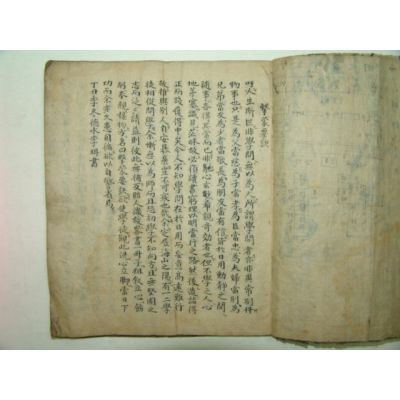 擊蒙要訣
人生斯世非學問無以為人所謂學問者亦非異常別件
物事也只是為父當慈為子當孝為臣當忠為夫婦當別為
兄弟當友為少者當敬長為朋友當有信皆於日用動靜之間
隨事各得其當而已非馳心玄妙希覬奇効者也但不學之人心
地茅塞識見茫昧故必須讀書窮理以明當行之路然後造詣得
正而踐履得中矣今人不知學問在於日用而妄意高遠難行
故推與別人自安暴棄豈不可哀也哉余定居海山之陽有一二學
徒相從問學余慚無以為師而且恐初學不知向方且無堅固之
志而泛泛請益則彼此無補反貽人譏故略書一冊子粗敍立心飭
躬奉親接物之方名曰擊蒙要訣欲使學徒觀此洗心立脚當日下
功而余亦久患因循欲以自警省焉
丁丑季冬德水李珥書